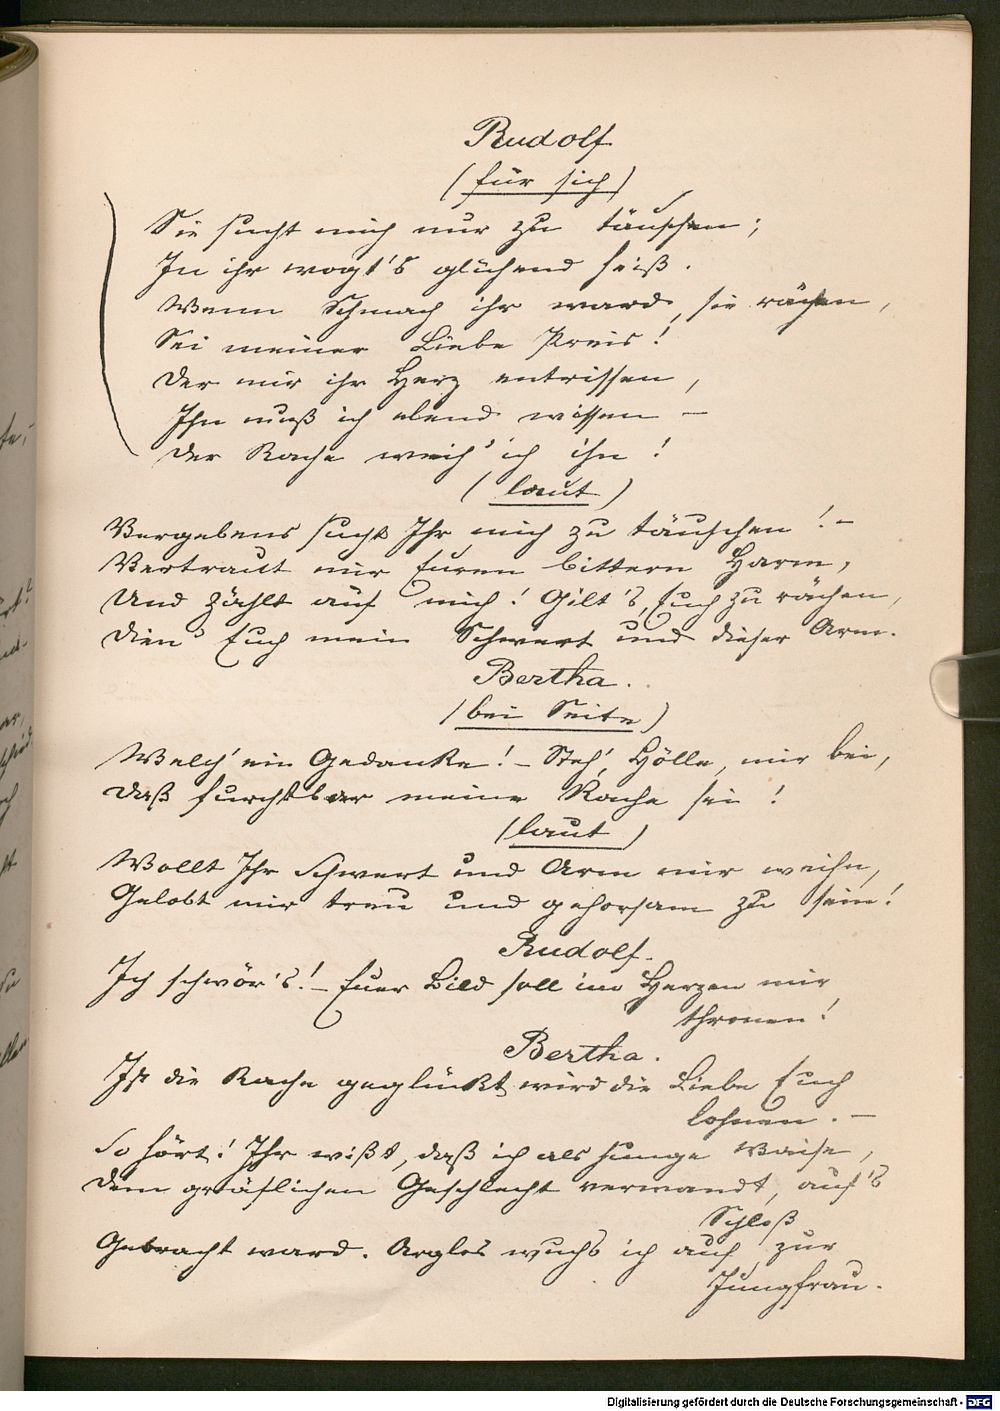 Rudolf
(für sich)
Sie sucht mich nur zu täuschen;
In ihr wogt's glühend heiß.
Wenn Schmach ihr ward, sie rächen,
Sei meiner Liebe Preis!
Der mir ihr Herz entrissen,
Ihn muß ich elend wissen –
Der Rache weih' ich ihn!
(laut)
Vergebens sucht Ihr mich zu täuschen! –
Vertraut mir Euren bittern Harm,
Und zählt auf mich! Gilt's, Euch zu rächen,
Dien' Euch mein Schwert und dieser Arm.
Bertha.
(bei Seite)
Welch' ein Gedanke! – Steh', Hölle, mir bei,
Daß furchtbar meine Rache sei!
(laut)
Wollt Ihr Schwert und Arm mir weihn,
Gelobt mir treu und gehorsam zu sein!
Rudolf.
Ich schwör's! – Euer Bild soll im Herzen mir
thronen!
Bertha.
Ist die Rache geglückt wird die Liebe Euch
lohnen. –
So hört! Ihr wißt, daß ich als junge Waise,
Dem gräflichen Geschlecht verwandt, auf's
Schloß
Gebracht ward. Arglos wuchs ich auf zur
Jungfrau.
Digitalisierung gefördert durch die Deutsche Forschungsgemeinschaft - DFG